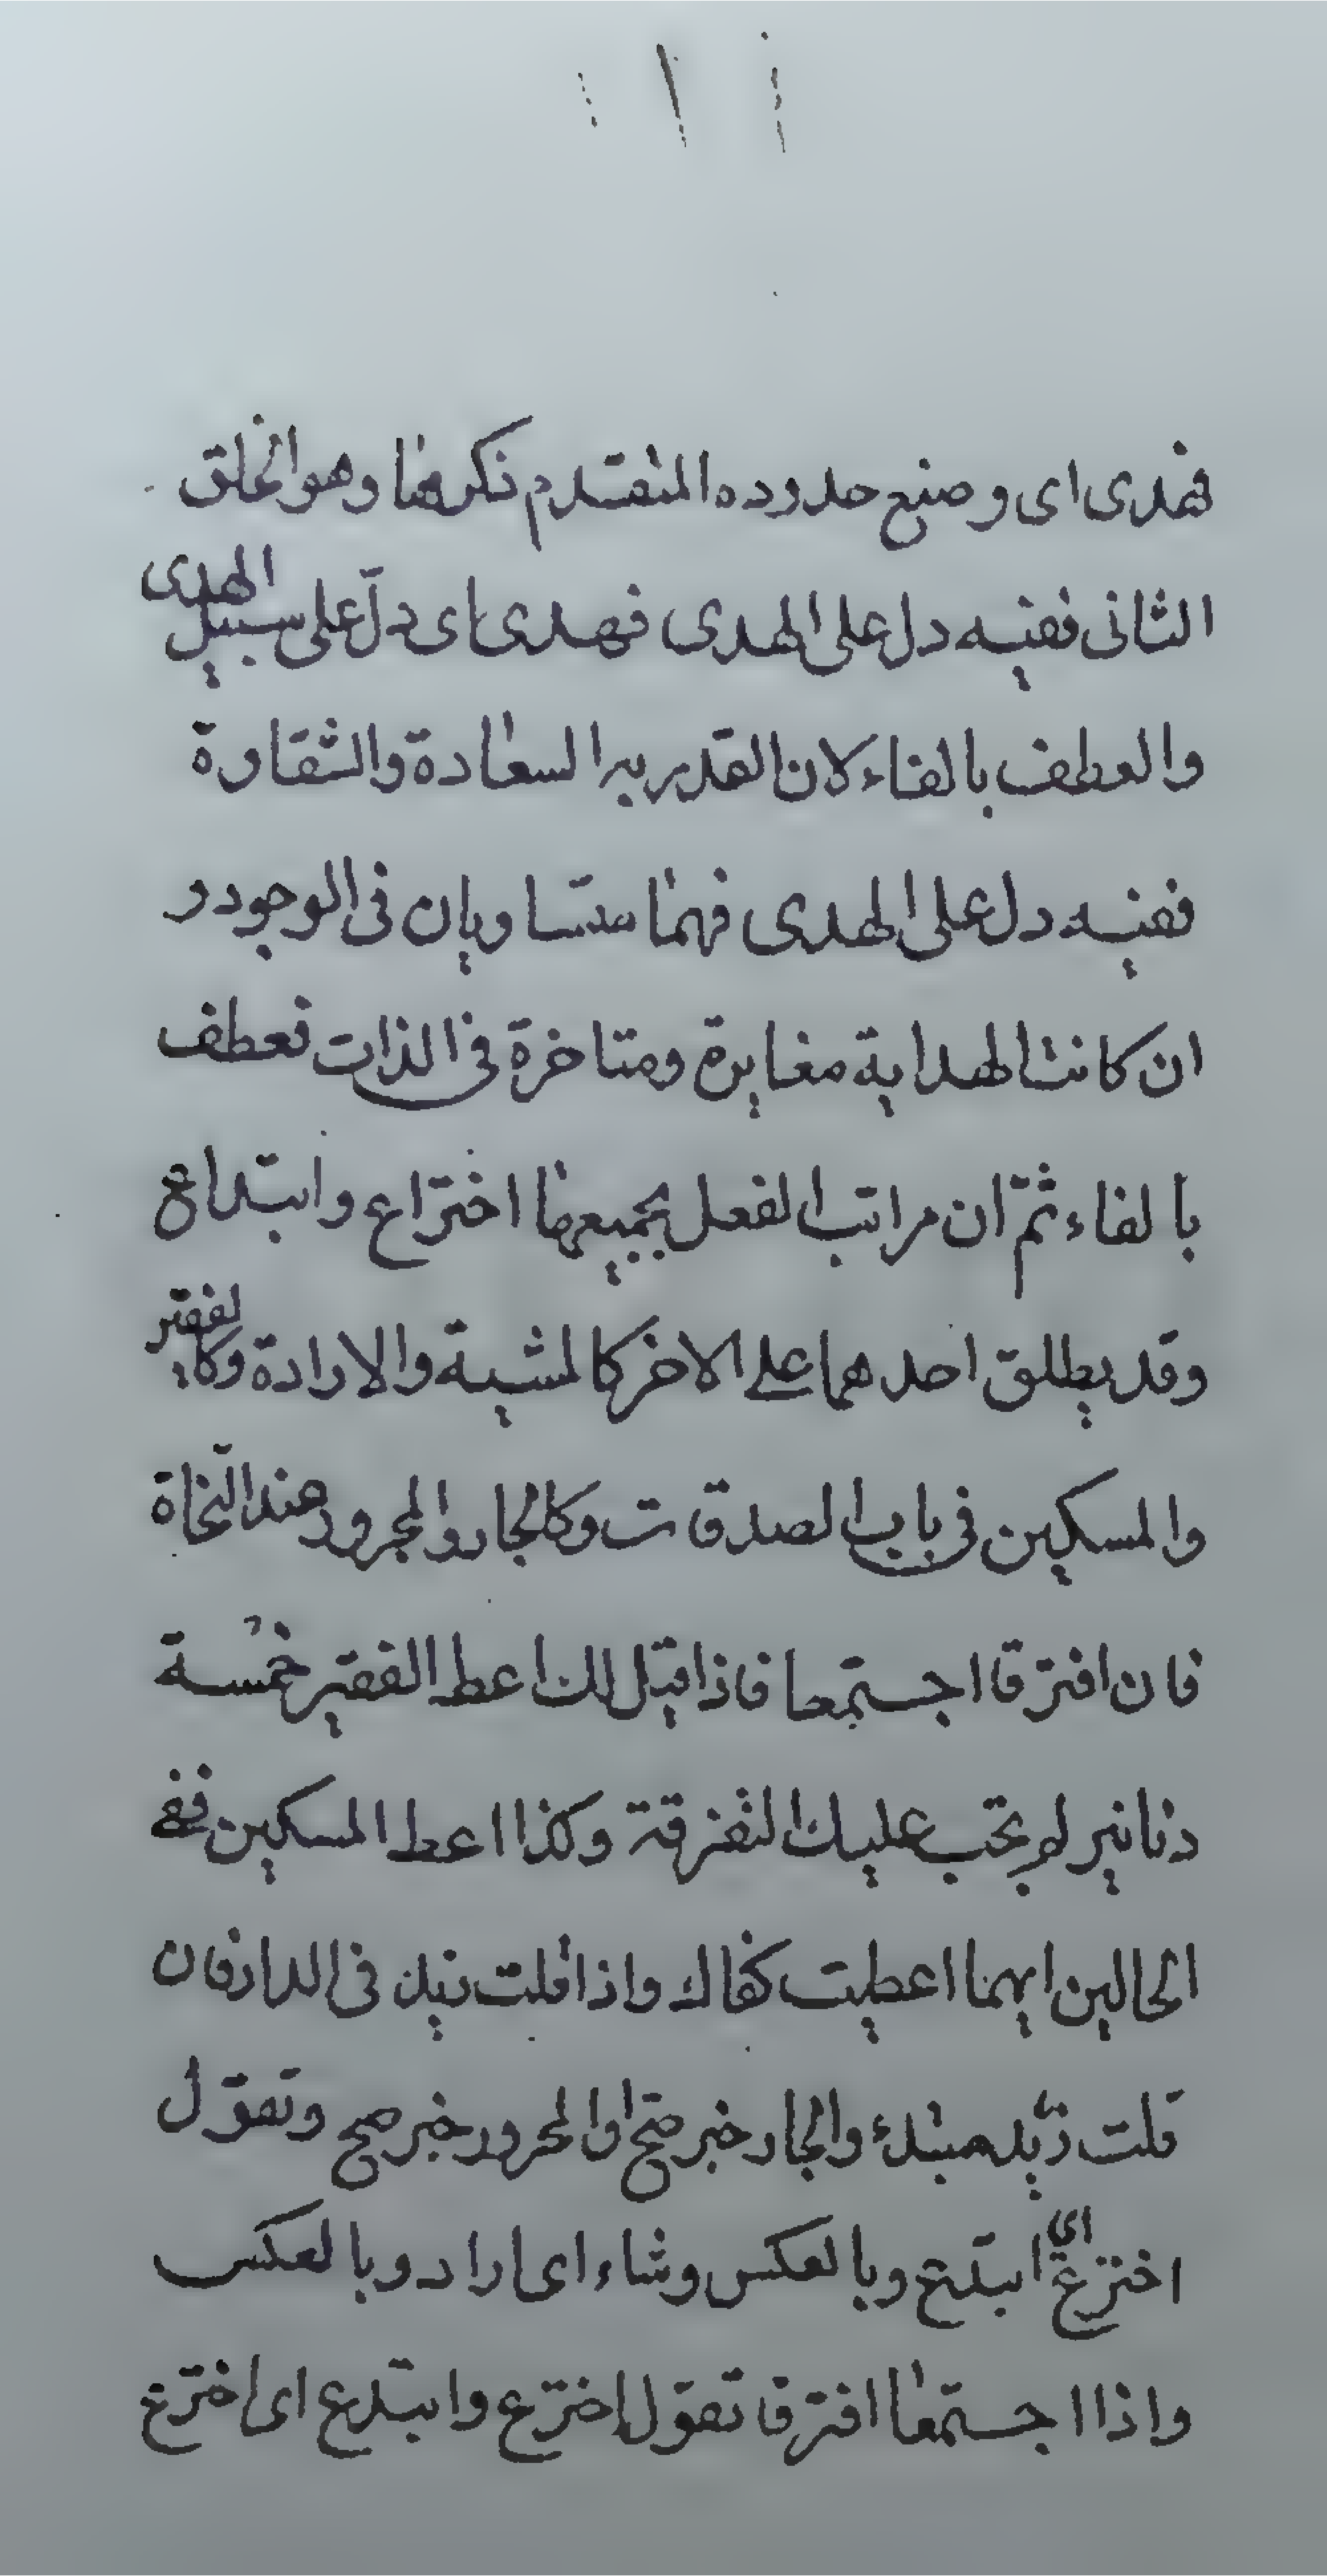 فهدى اى وضع حدوده المتقدم ذكرها وهو الخلق
الثانى ففيه دل على الهدى فهدى اى دلّ على سبيل الهدى
والعطف بالفاء لان القدر به السعادة والشقاوة
ففيه دل على الهدى فهما متساويان فى الوجود و
ان كانت الهداية مغايرة ومتاخرة فى الذات فعطف
بالفاء ثمّ ان مراتب الفعل بجميعها اختراع وابتداع
وقد يطلق احدهما على الاخر كالمشية والارادة وكالفقير
والمسكين فى باب الصدقات وكالجار والمجرور عند النّحاة
فان افترقا اجتمعا فاذا قيل لك اعط الفقير خمسة
دنانير لم يجب عليك التفرقة وكذا اعط المسكين ففى
الحالين ايهما اعطيت كفاك واذا قلت زيد فى الدار فان
قلت زيد مبتدء والجار خبر صح والمجرور خبر صح وتقول
اخترع اى ابتدع وبالعكس وشاء اى اراد وبالعكس
واذا اجتمعا افترقا تقول اخترع وابتدع اى اخترع